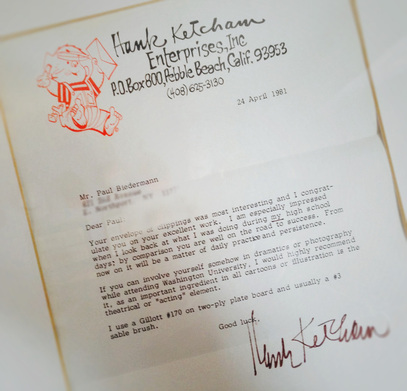 Hank Ketcham
Enterprises, Inc
P.O. Box 800, Pebble Beach, Calif. 93953
(408) 625-3130
24 April 1981
Mr. Paul Biedermann
Dear Paul
Your envelope of clippings was most interesting and I congrat-
ulate you on your excellent work. I am especially impressed
when I look back at what I was doing during my high school
days: by comparison you are well on the road to success. From
now on it will be a matter of daily practice and persistence.
If you can involve yourself somehow in dramatics or photography
while attending Washington University, I would highly recommend
it, as an important ingredient in all cartoons or illustration is the
theatrical or "acting" element.
I use a Gillott #170 on two-ply plate board and usually a #3
sable brush.
Good luck,
Hank Ketcham